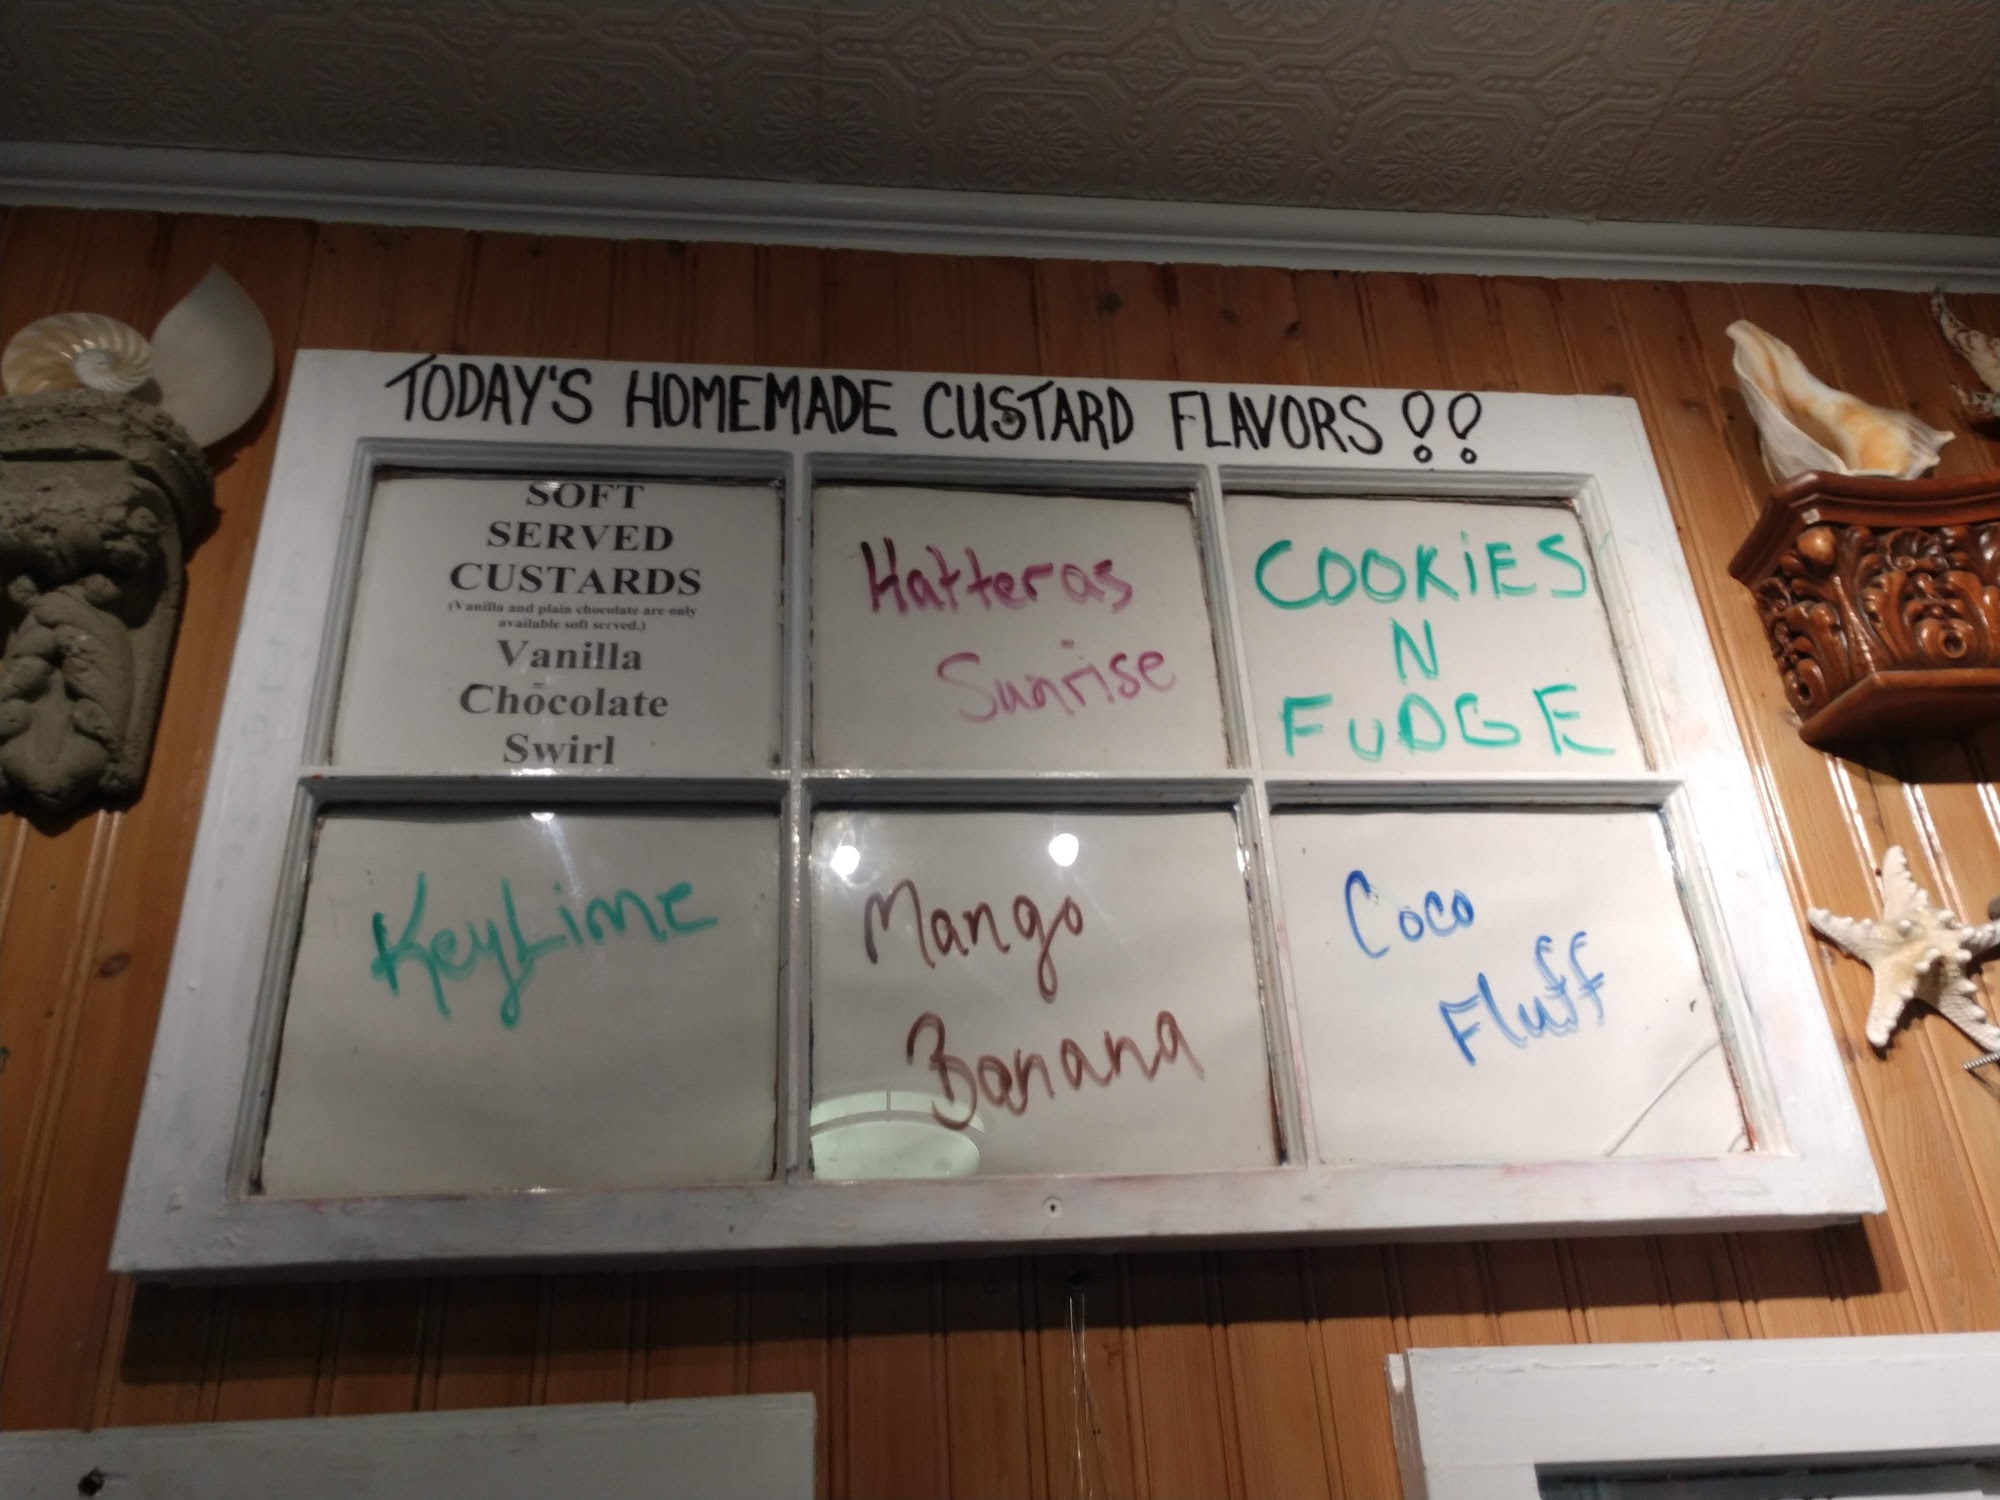 TODAY'S HOMEMADE CUSTARD FLAVORS!!
SOFT
SERVED
CUSTARDS
(Vanilla and plain chocolate are only
available soft served.)
Vanilla
Chocolate
Swirl
Hatteras
Sunrise
COOKiES
N
FuDGE
KeyLime
Mango
Banana
Coco
Fluff